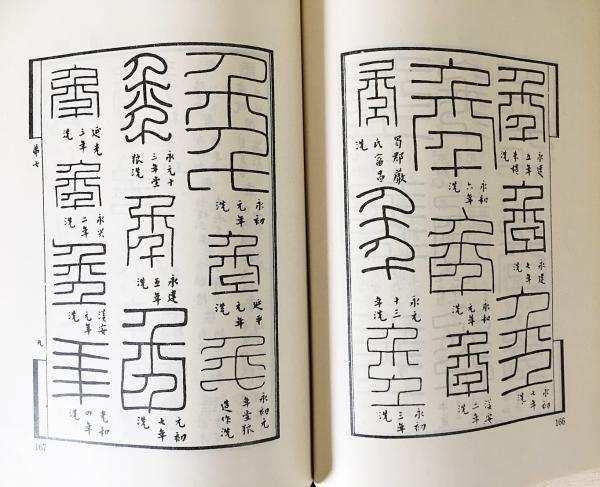 永建
五年
朱提
洗
永建
七年
洗
永初
七年
洗
永和
六年
洗
永和
元年
洗
漢安
二年
洗
蜀郡嚴
氏富昌
洗
永元
十三
年洗
永初
三年
洗
166
永初
元年
洗
延平
元年
洗
永初元
年堂狼
造作洗
永元十
三年堂
狼洗
永建
五年
洗
元初
七年
洗
延光
三年
洗
永興
二年
洗
漢安
元年
洗
光和
四年
洗
第七
九
167